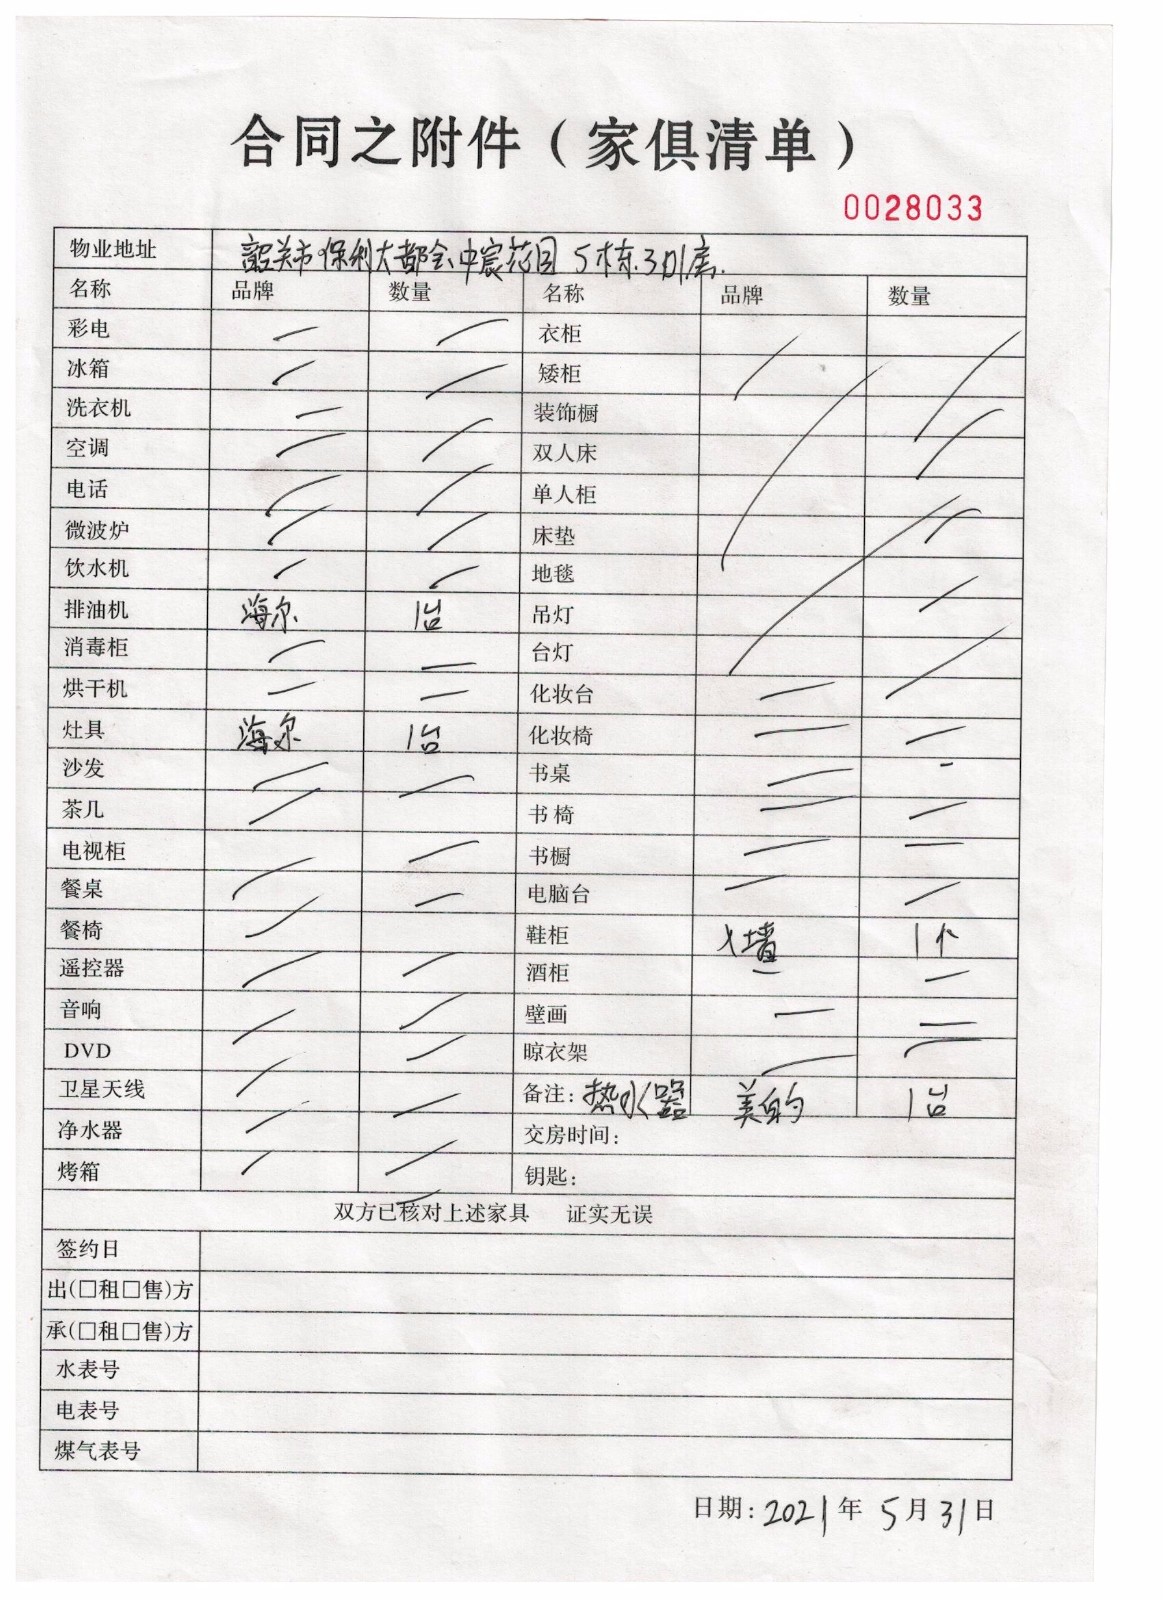 合同之附件（家俱清单）
0028033
物业地址 韶关市保利大都会中宸花园5栋.301房.
名称 品牌 数量 名称 品牌 数量
彩电 衣柜
冰箱 矮柜
洗衣机 装饰橱
空调 双人床
电话 单人柜
微波炉 床垫
饮水机 地毯
排油机 海尔 1台 吊灯
消毒柜 台灯
烘干机 化妆台
灶具 海尔 1台 化妆椅
沙发 书桌
茶几 书椅
电视柜 书橱
餐桌 电脑台
餐椅 鞋柜 入墙 1个
遥控器 酒柜
音响 壁画
DVD 晾衣架
卫星天线 备注：热水器 美的 1台
净水器 交房时间：
烤箱 钥匙：
双方已核对上述家具 证实无误
签约日
出(□租□售)方
承(□租□售)方
水表号
电表号
煤气表号
日期：2021年5月31日